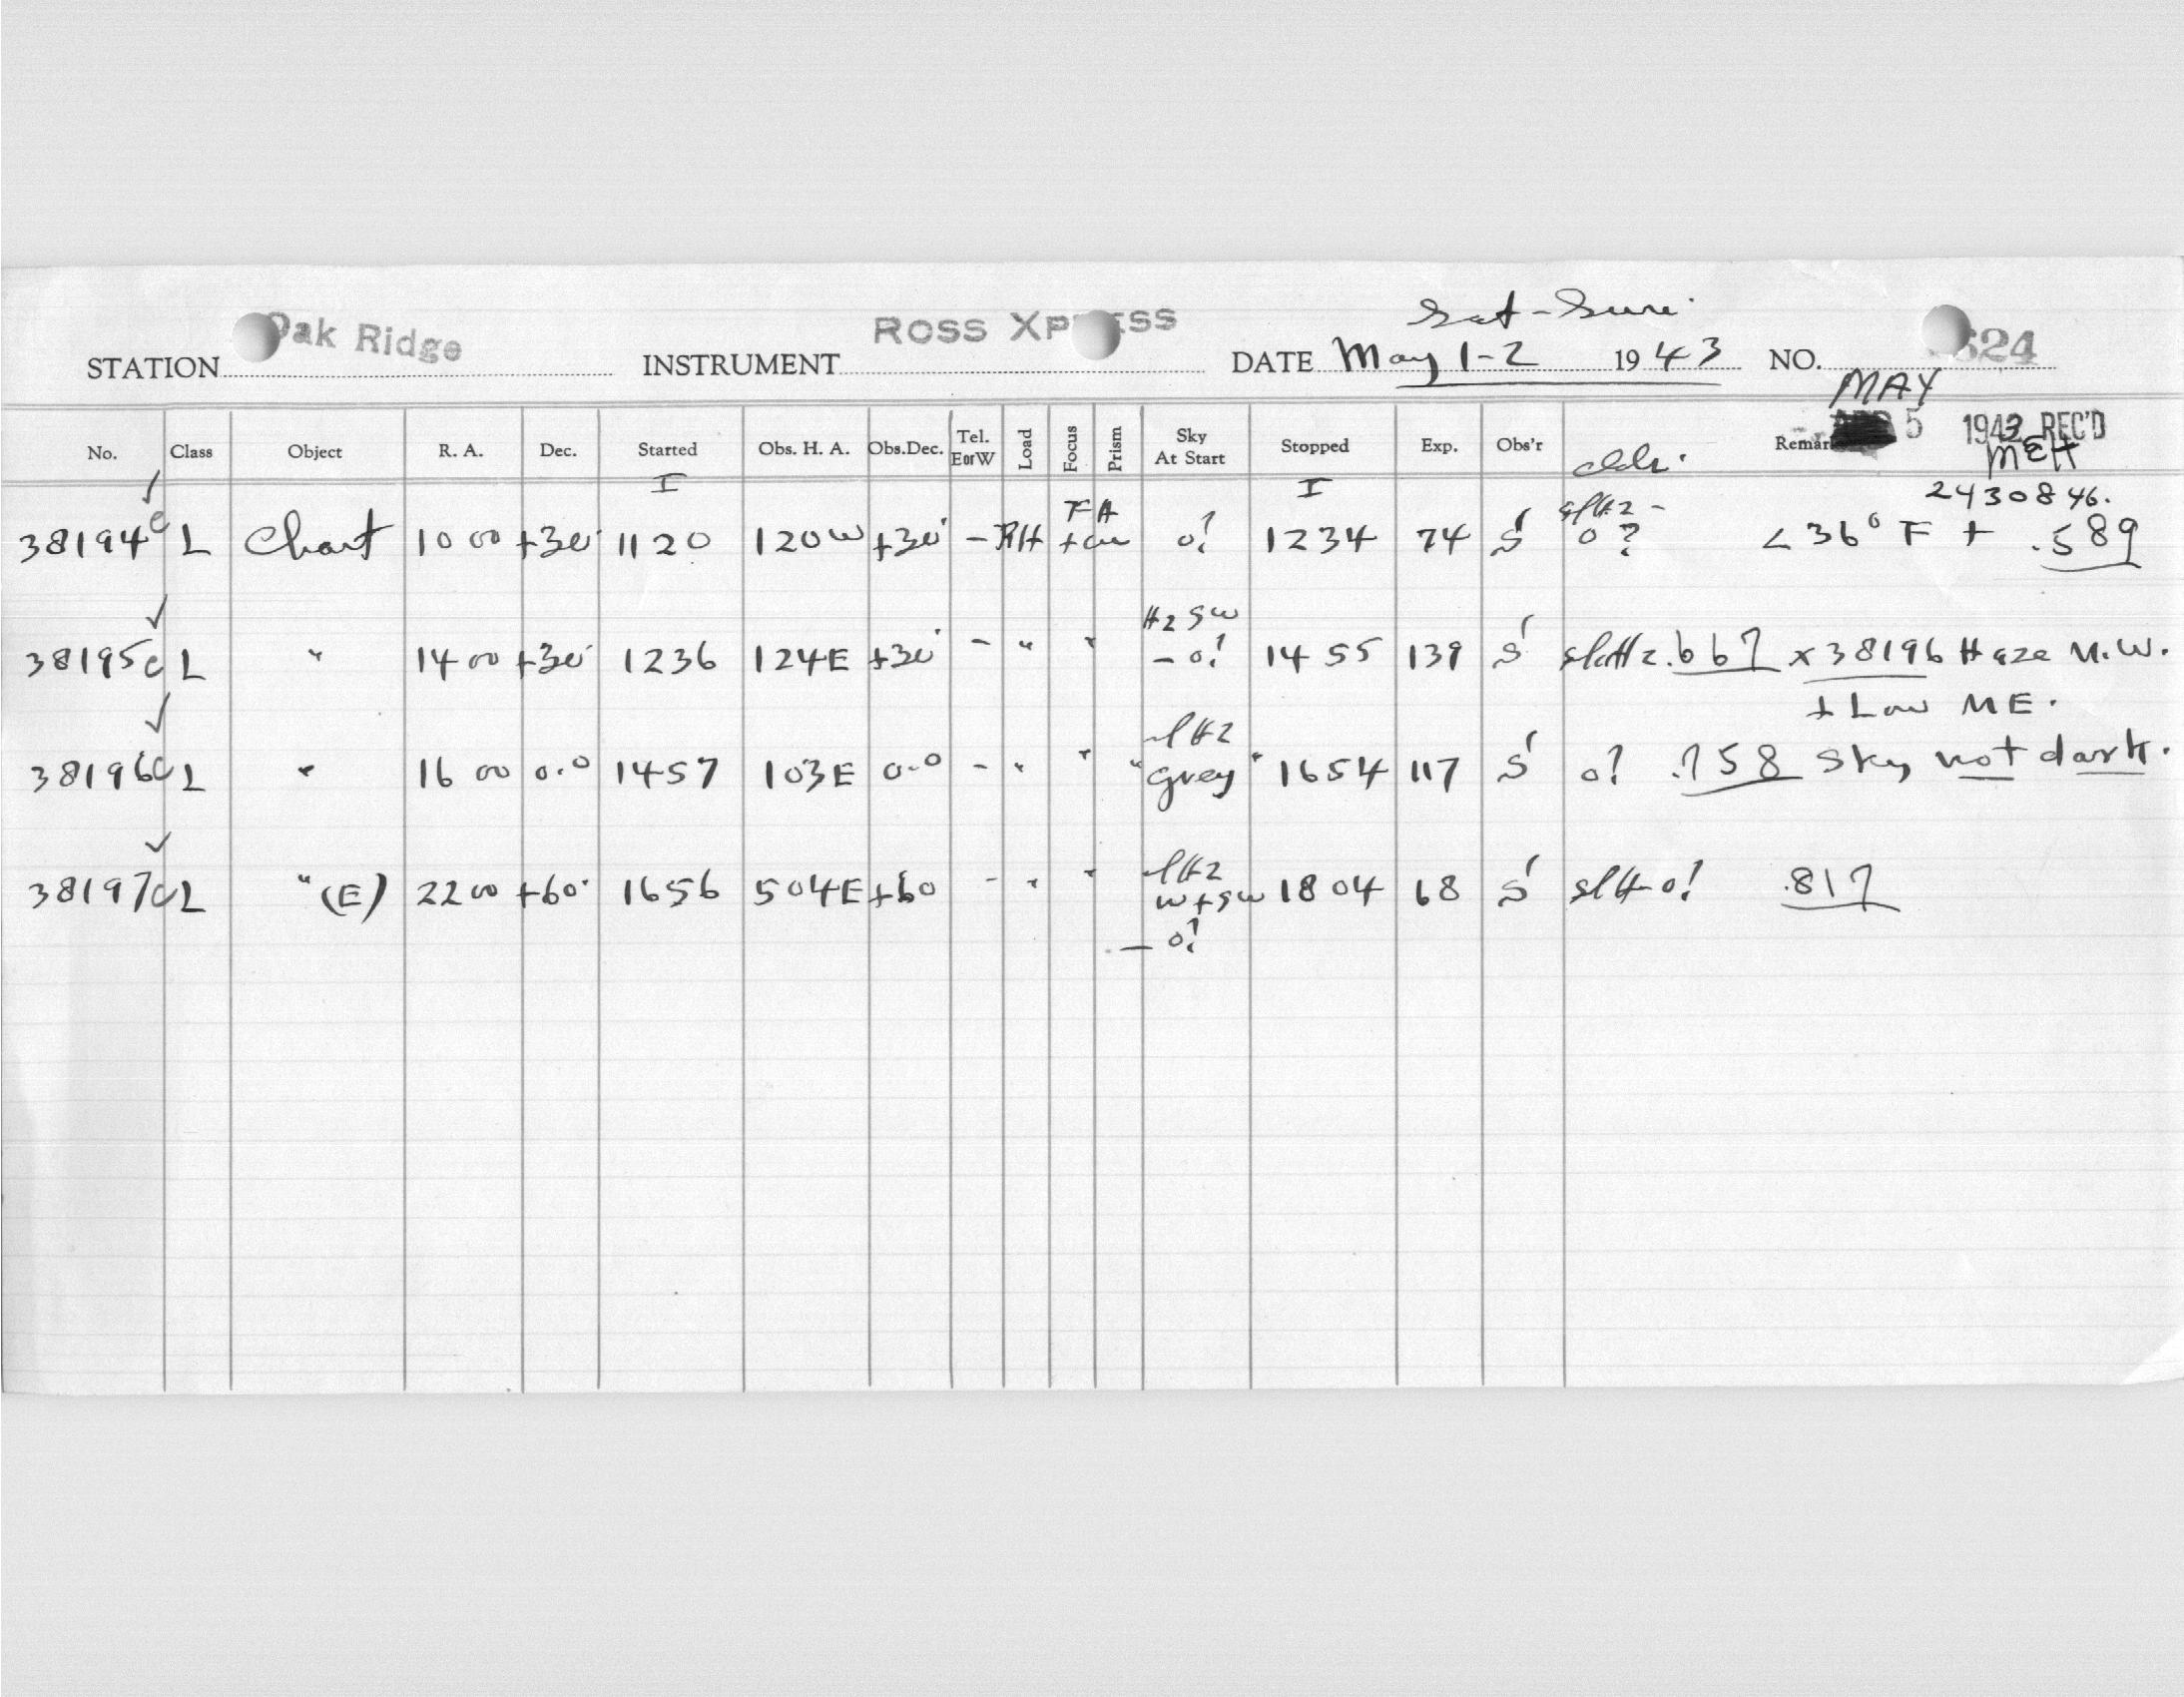 Sat-Sun.
STATION Oak Ridge INSTRUMENT ROSS XPRESS DATE May 1-2 1943 NO. 624
MAY
5 1943 REC'D
MEH
No. Class Object R. A. Dec. Started Obs. H. A. Obs.Dec. Tel. EorW Load Focus Prism Sky At Start Stopped Exp. Obs'r Remar
I I
2430846.
38194c L Chart 10 00 +30 1120 120W +30 - RH o? 1234 74 S o? <36° F + .589
Hz SW
38195c L " 14 00 +30 1236 124E +30 - " " - o? 1455 139 S sl Hz .667 x 38196 Haze N.W.
+ Low NE.
sl Hz
38196c L " 16 00 0.0 1457 103E 0.0 - " " "grey" 1654 117 S o? .758 Sky not dark.
sl Hz
38197c L "(E) 22 00 +60 1656 504E +60 - " " W + SW 1804 68 S sl H-o? .817
- o?